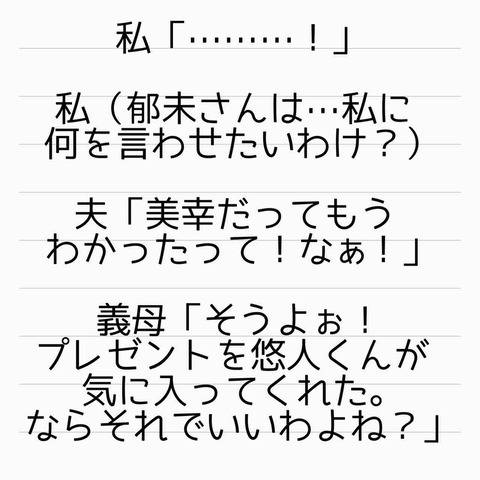 私「………！」
私（郁未さんは…私に
何を言わせたいわけ？）
夫「美幸だってもう
わかったって！なぁ！」
義母「そうよぉ！
プレゼントを悠人くんが
気に入ってくれた。
ならそれでいいわよね？」